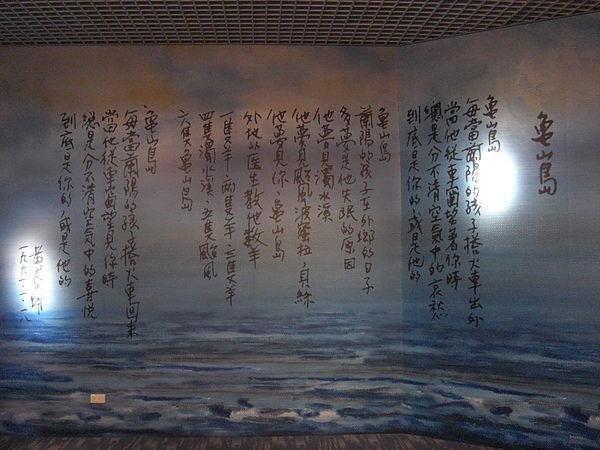 龜山島
龜山島
每當蘭陽的孩子搭火車出外
當他從車窗望著你時
總是分不清空氣中的哀愁
到底是你的,或是他的
龜山島
蘭陽的孩子在外鄉的日子
多夢是他失眠的原因
他夢見濁水溪
他夢見颱風波蜜拉,貝絲
他夢見你,龜山島
外地的医生教他數羊
一隻羊、兩隻羊、三隻羊
四隻濁水溪、五隻颱風
六隻龜山島
龜山島
每當蘭陽的孩子搭火車回來
當他從車窗望見你時
總是分不清空氣中的喜悅
到底是你的,或是他的
黃春明